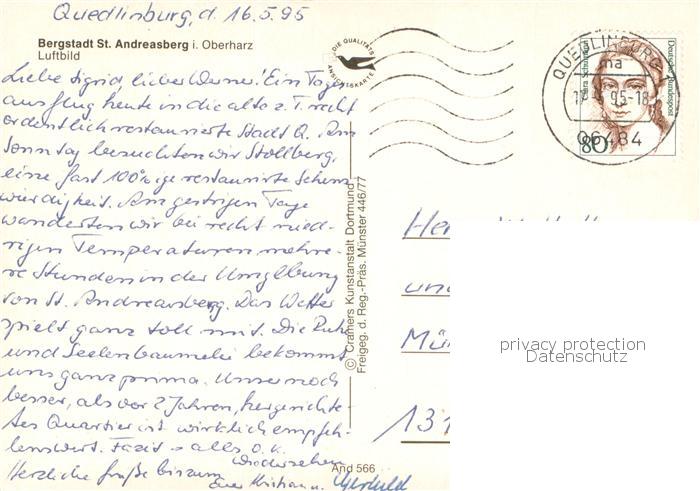 Quedlinburg, d. 16.5.95
Bergstadt St. Andreasberg i. Oberharz
Luftbild
Liebe Sigrid lieber Werner! Ein Tages
ausflug heute in die alte z. T. recht
ordentlich restaurierte Stadt Q. Am
Sonntag besuchten wir Stollberg,
eine fast 100%ige restaurirte Sehens
würdigkeit. Am gestrigen Tage
wanderten wir bei recht nied-
rigen Temperaturen mehre-
re Stunden in der Umgebung
von St. Andreasberg. Das Wetter
spielt ganz toll mit. Die Ruhe
und Seelenbaumelei bekommt
uns ganz prima. Unser noch
besser, als vor 2 Jahren, hergerichte-
tes Quartier ist wirklich empfeh-
lenswert. Fazit = alles o.k.
Herzliche Grüße bis zum Wiedersehen
Eure Christian u. Gerhild
DIE QUALITÄTS
ANSICHTSKARTE
© Cramers Kunstanstalt Dortmund
Freigeg. d. Reg.-Präs. Münster 446/77
And 566
QUEDLINBURG
ma
95-18
06484
Clara Schumann
Deutsche Bundespost
80
und
131
privacy protection
Datenschutz